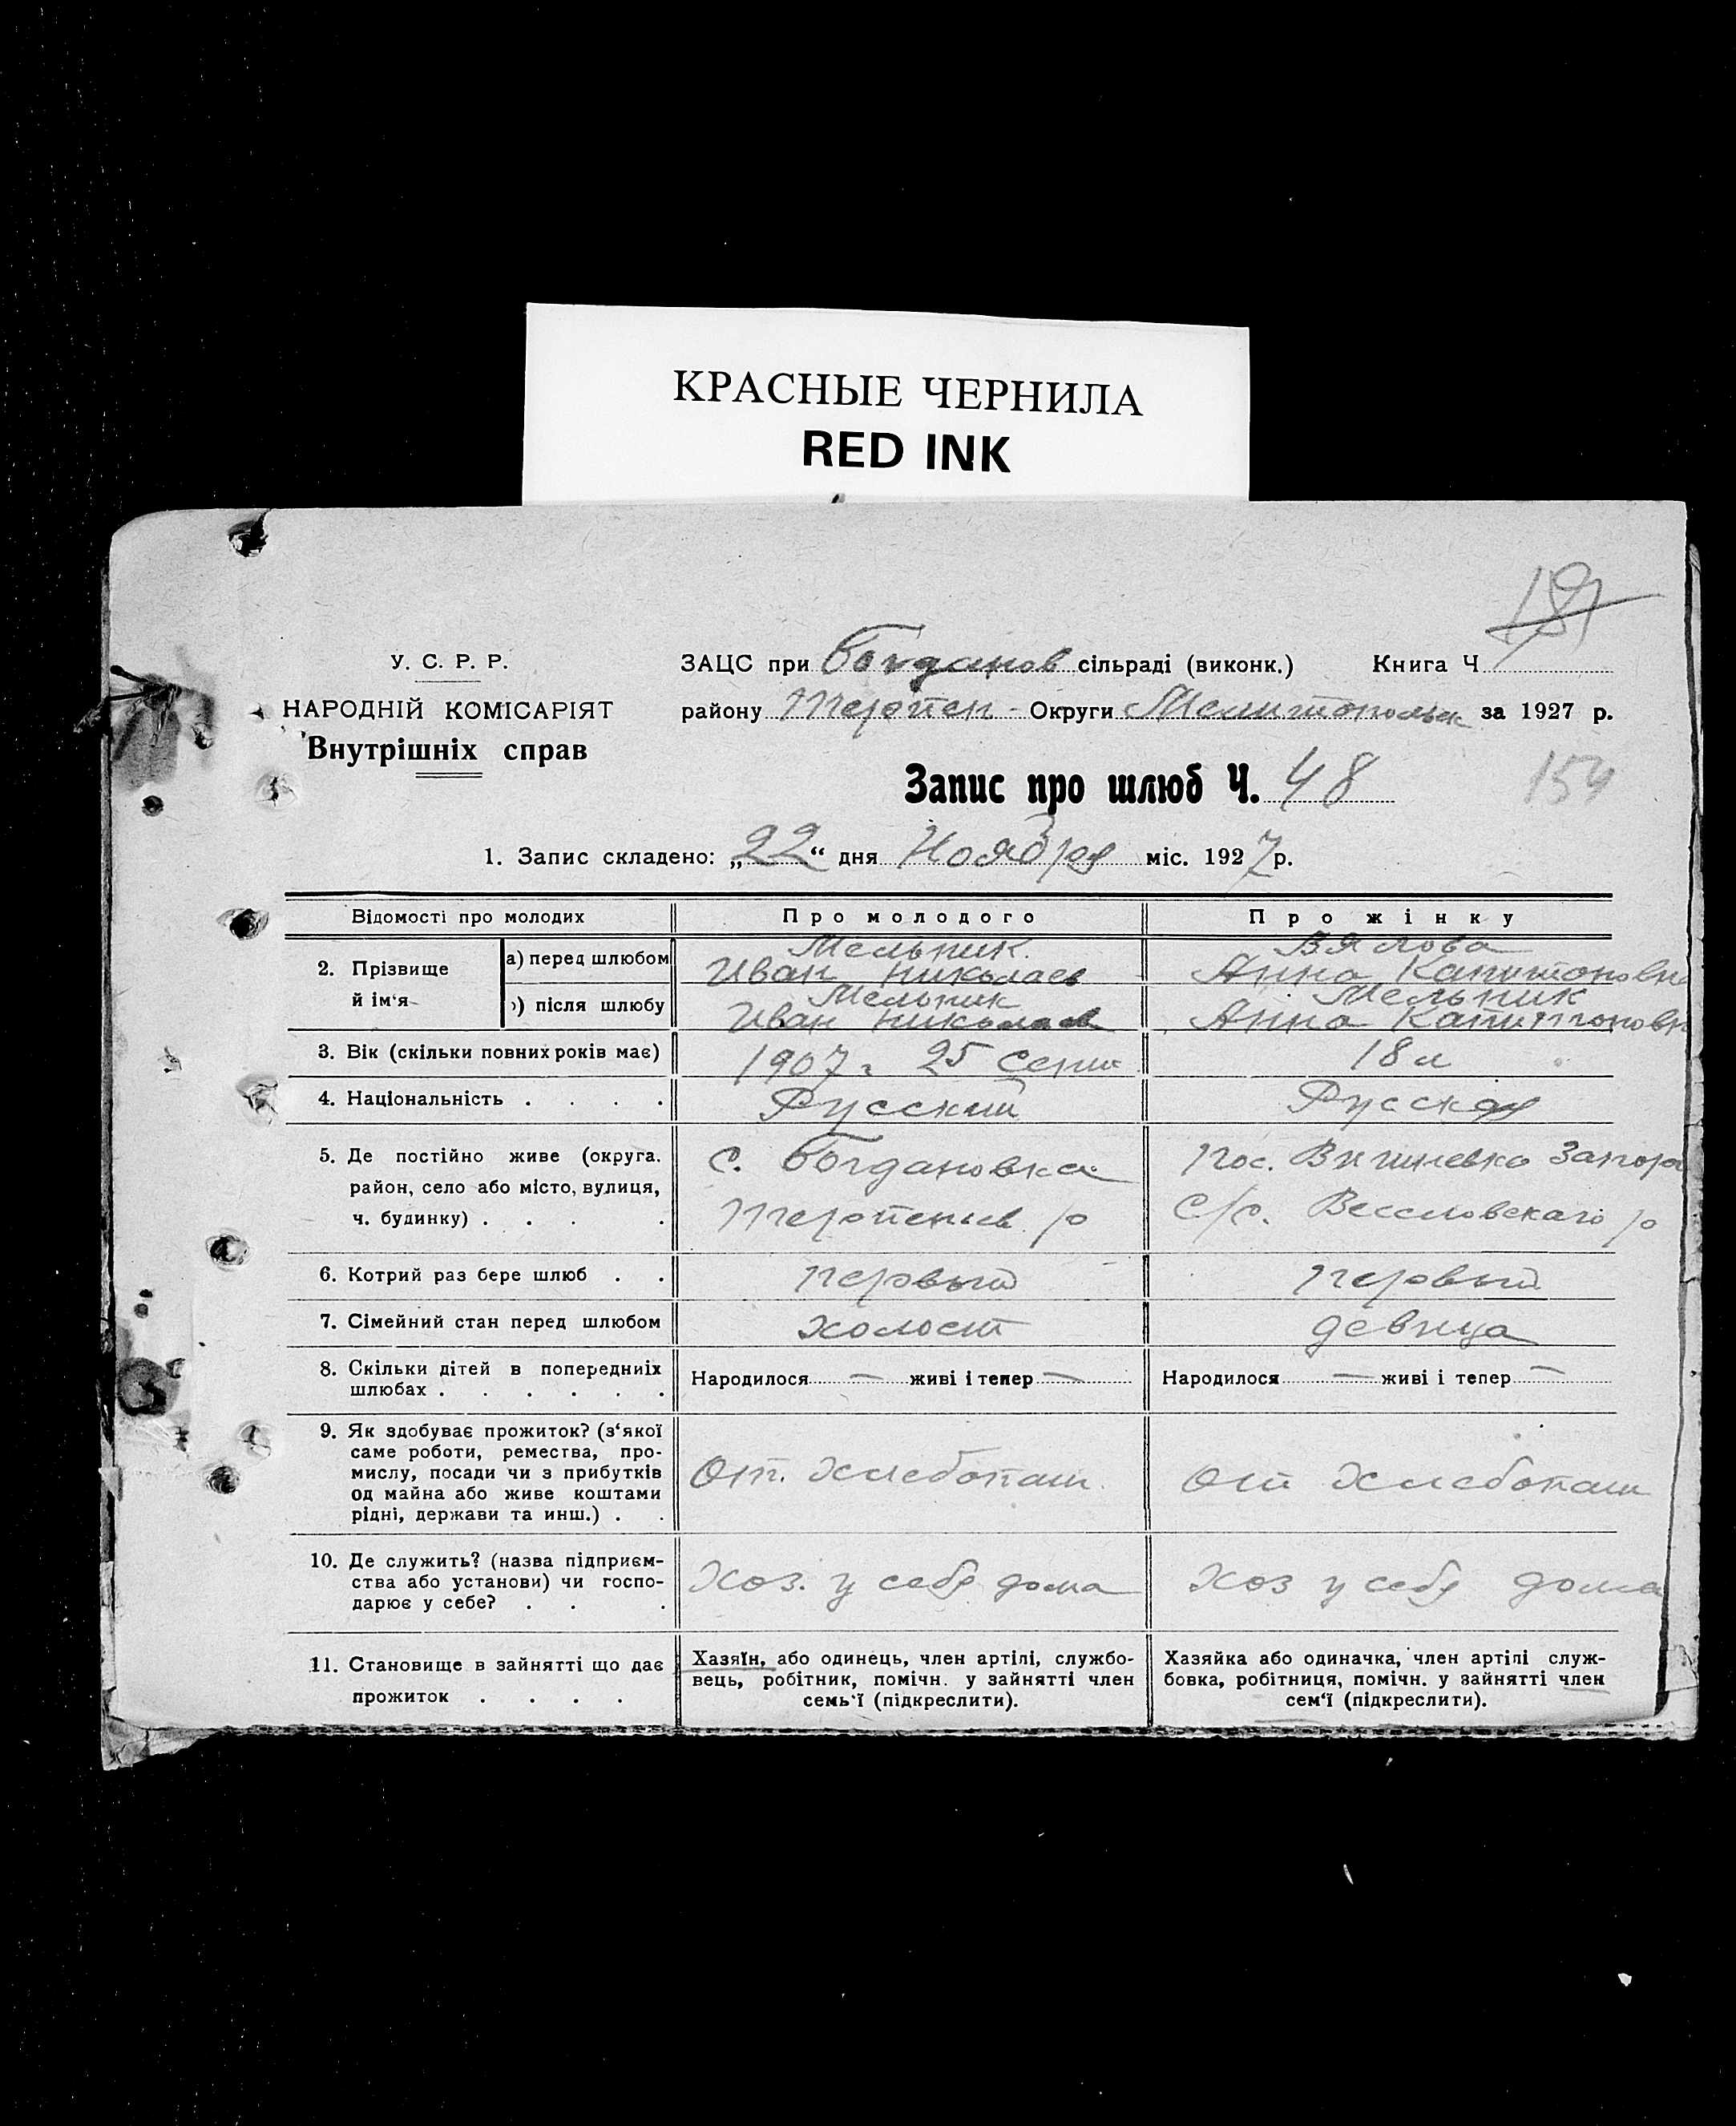 КРАСНЫЕ ЧЕРНИЛА
RED INK
У. С. Р. Р.
НАРОДНІЙ КОМІСАРІЯТ
Внутрішніх справ
ЗАЦС при Богданов сільраді (виконк.) Книга Ч
району Терпен Округи Мелитопольск за 1927 р.
Запис про шлюб Ч. 48
154
1. Запис складено: „22“ дня Ноября міс. 1927 р.
Відомості про молодих Про молодого Про жінку
2. Прізвище й ім‘я
а) перед шлюбом Мельник. Вялова
Иван Николаев Анна Капитоновна
) після шлюбу Мельник Мельник
Иван Николаев Анна Капитоновн
3. Вік (скільки повних років має) 1907 г 25 Сент 18 л
4. Національність . . . . Русский Русская
5. Де постійно живе (округа. с. Богдановка пос. Вишневка
район, село або місто, вулиця,
ч. будинку) . . . . Терпеньев р С/с. Веселовскаго р
6. Котрий раз бере шлюб . . первый первый
7. Сімейний стан перед шлюбом холост девица
8. Скільки дітей в попередниіх
шлюбах . . . . . . Народилося — живі і тепер — Народилося — живі і тепер —
9. Як здобуває прожиток? (з‘якої
саме роботи, ремества, про-
мислу, посади чи з прибутків От. Хлебопаш. От Хлебопаш
од майна або живе коштами
рідні, держави та инш.) . .
10. Де служить? (назва підприєм-
ства або установи) чи госпо- Хоз. у себя дома Хоз у себя дома
дарює у себе? . . .
11. Становище в зайнятті що дає
прожиток . . . .
Хазяїн, або одинець, член артілі, службо-
вець, робітник, помічн. у зайнятті член
семь‘ї (підкреслити).
Хазяйка або одиначка, член артілі служ-
бовка, робітниця, помічн. у зайнятті член
сем‘ї (підкреслити).